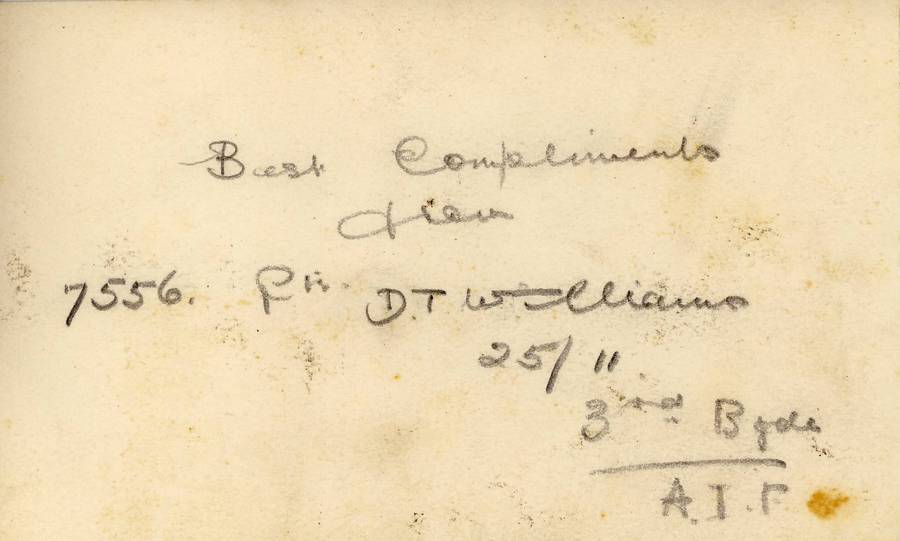 Best Compliments
from
7556. Pte. D.T Williams
25/11
3rd Bgde
A.I.F